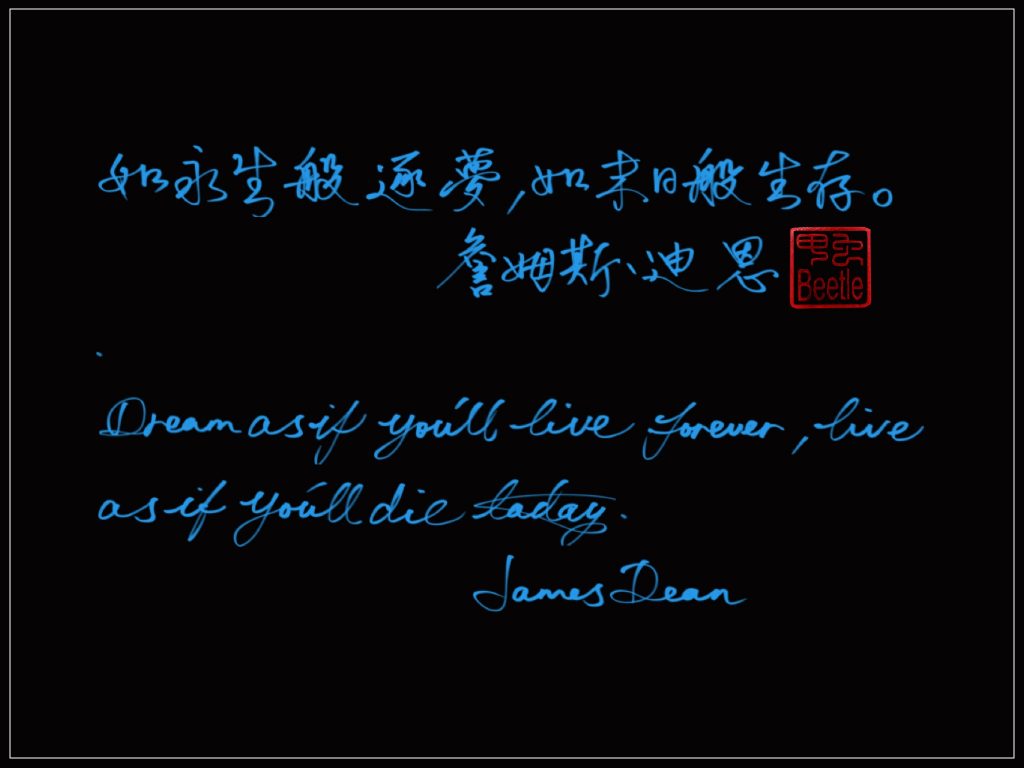 如永生般逐夢,如末日般生存。
詹姆斯、迪恩
Beetle
Dream as if you'll live forever, live
as if you'll die today.
James Dean